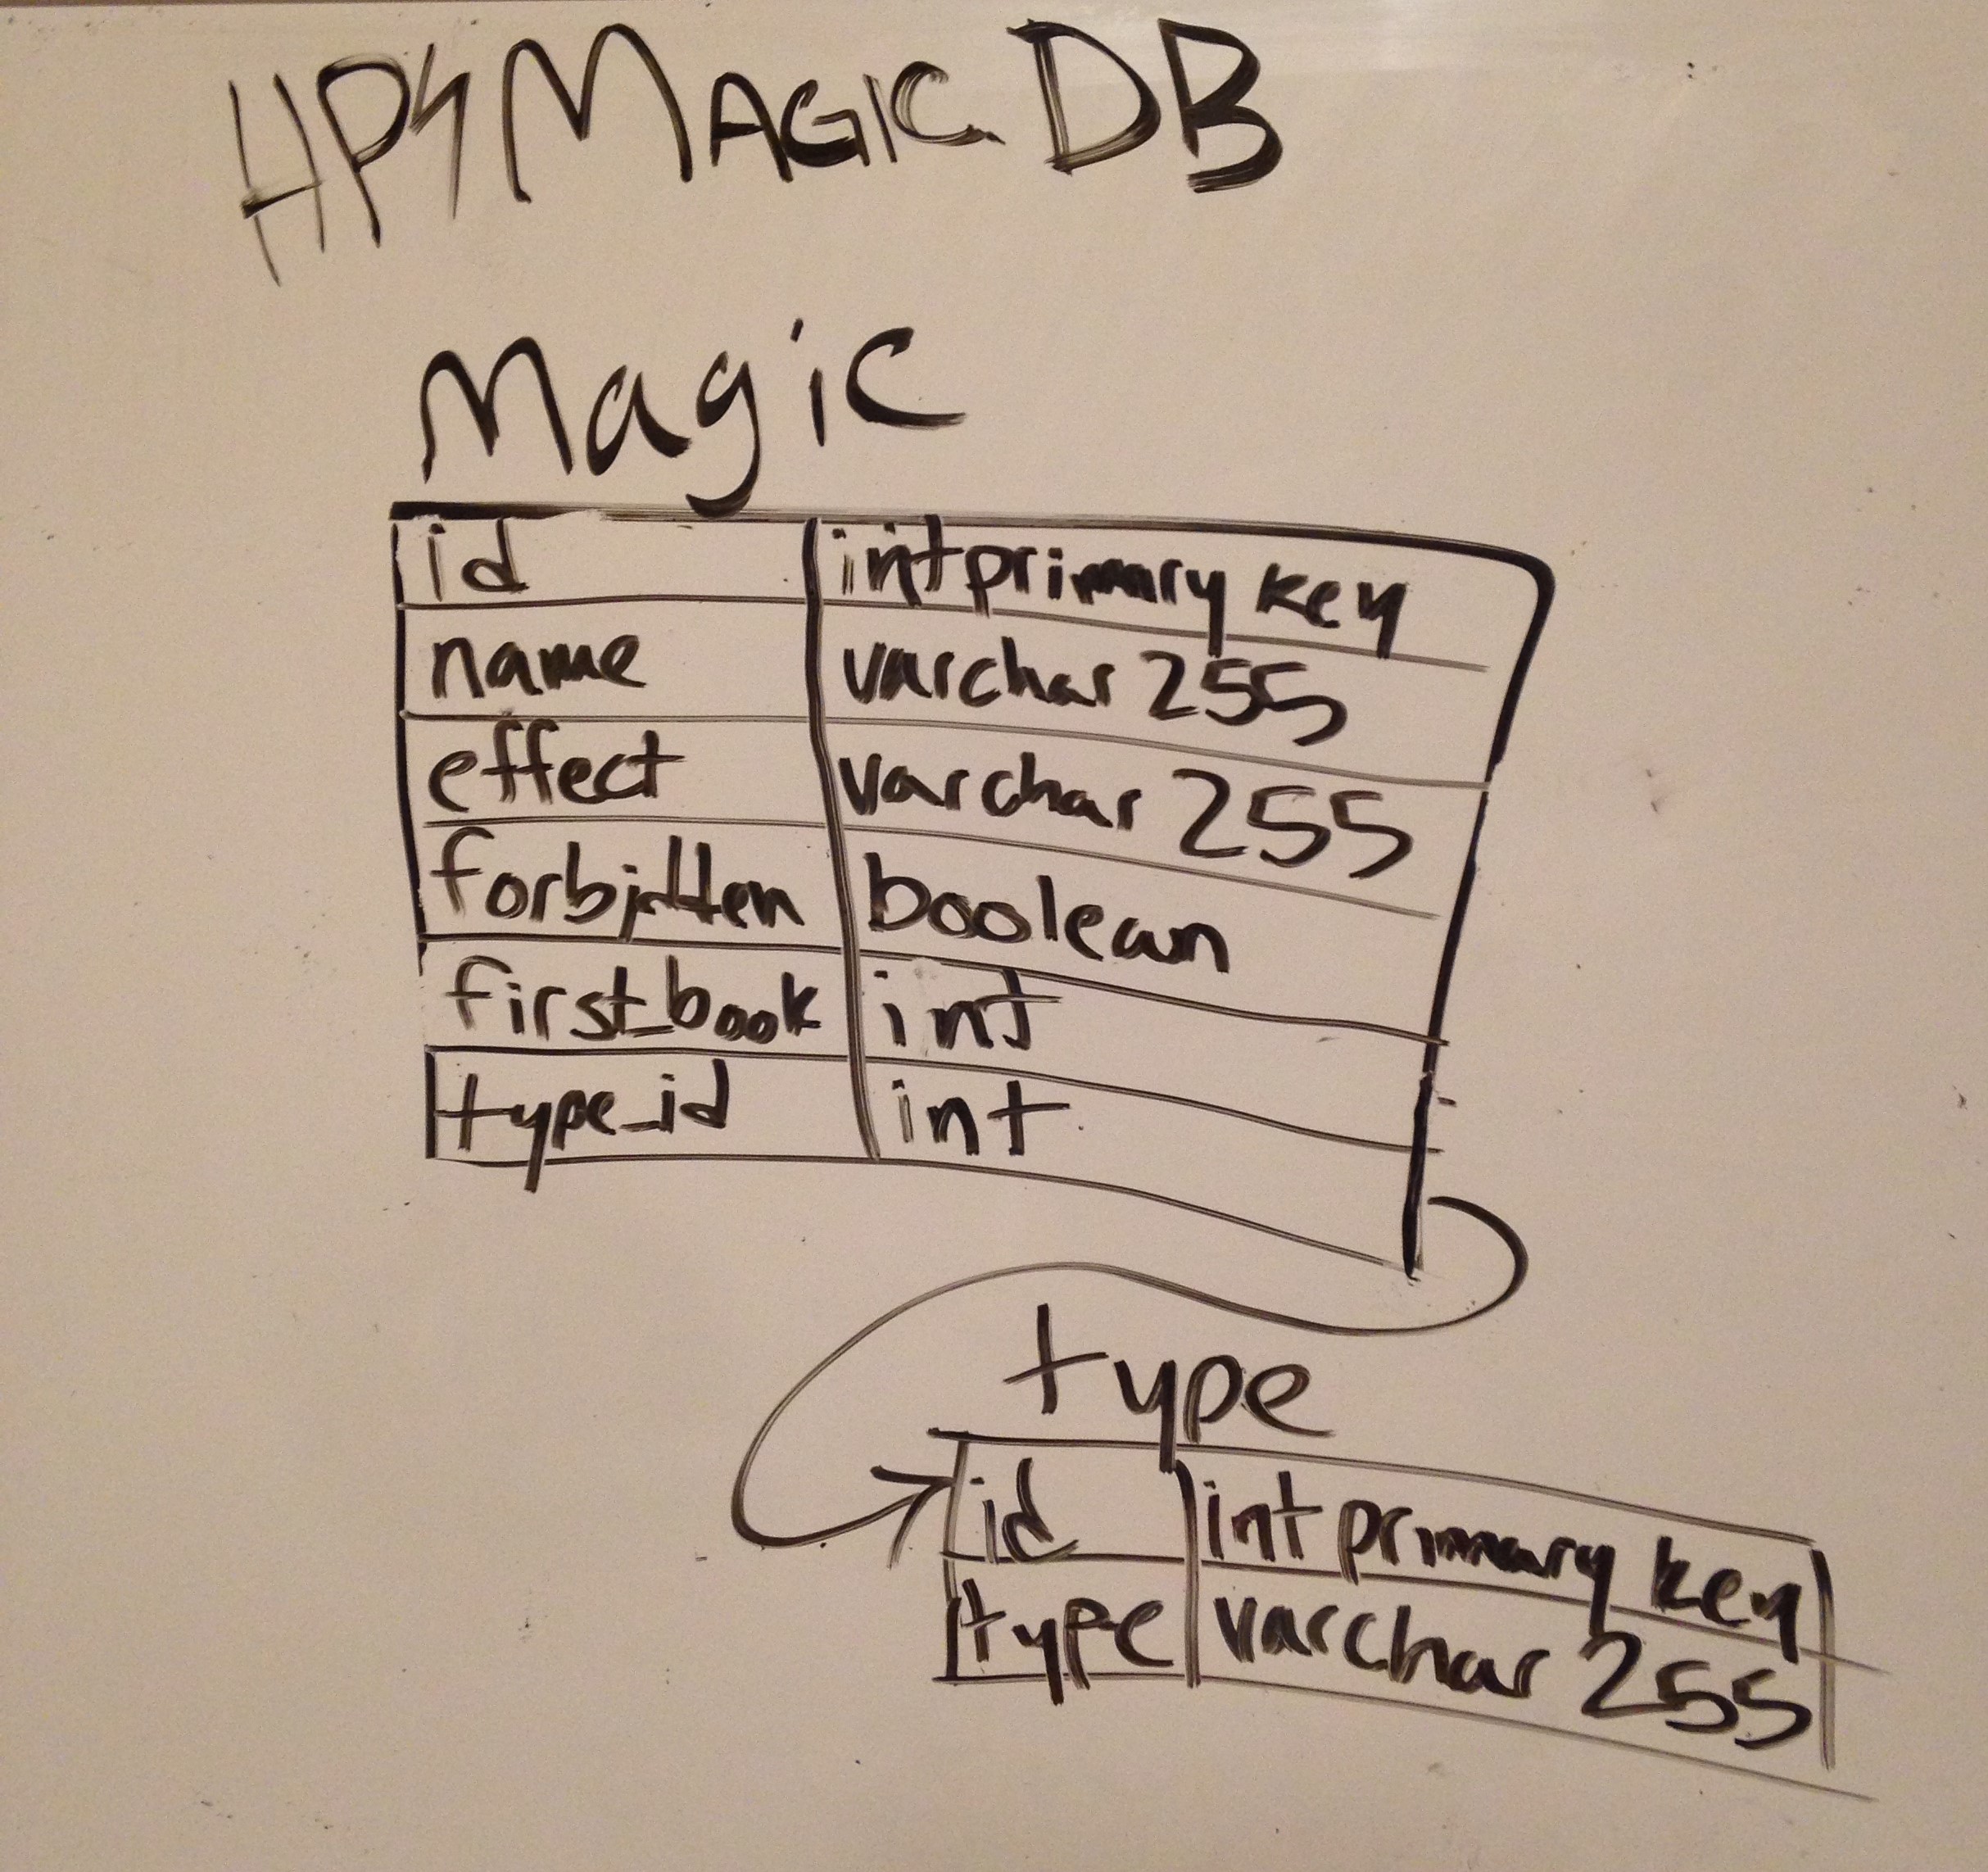 HPS MAGIC DB
Magic
id int primary key
name varchar 255
effect varchar 255
forbidden boolean
first_book int
type_id int
type
id int primary key
type varchar 255